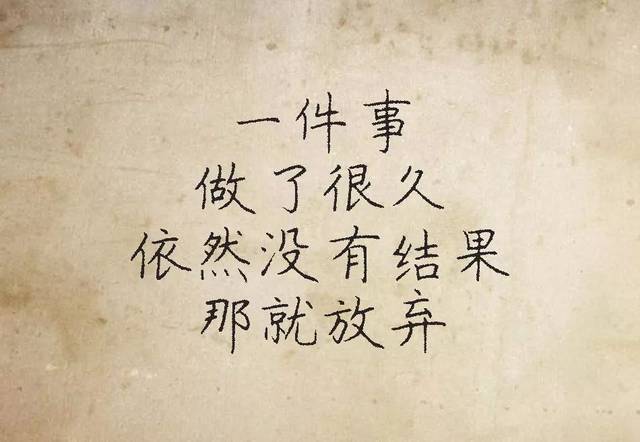 一件事
做了很久
依然没有结果
那就放弃